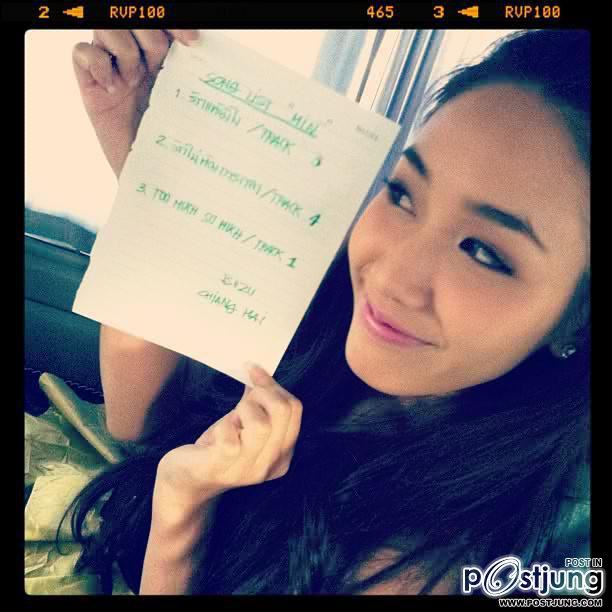 2 RVP100 465 3 RVP100
SONG LIST "MIN"
1. รักแท้ยังไง / TRACK 3
2. / TRACK 4
3. TOO MUCH SO MUCH / TRACK 1
CHIANG MAI
POST IN
postjung
WWW.POSTJUNG.COM